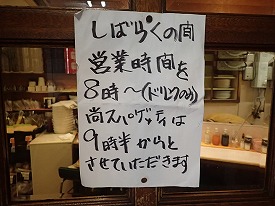 しばらくの間
営業時間を
8時〜(ドリンクのみ)
尚スパゲッティは
9時半からと
させていただきます